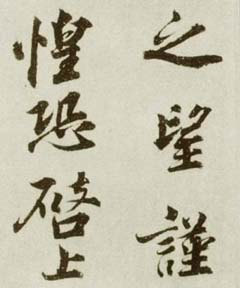 之望謹
惶恐啓上